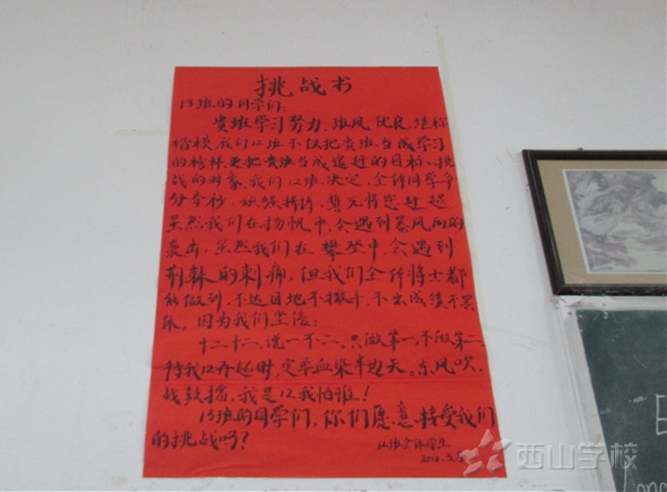 挑战书
13班的同学们:
贵班学习努力,班风优良,堪称
楷模,我们12班不仅把贵班当成学习
的榜样,更把贵班当成追赶的目标、挑
战的对象,我们12班决定,全体同学争
分夺秒,顽强拼搏,
虽然我们在扬帆中,会遇到暴风雨的
袭击,虽然我们在攀登中,会遇到
荆棘的刺痛,但我们全体将士都
能做到,不达目地不撒手,不出成绩不罢
休。因为我们坚信:
十二十二,说一不二,只做第一,不做第二,
待我12齐起时,定要血染半边天。东风吹,
战鼓擂,我是12我怕谁!
13班的同学们,你们愿意接受我们
的挑战吗?
12班全体学生
西山学校